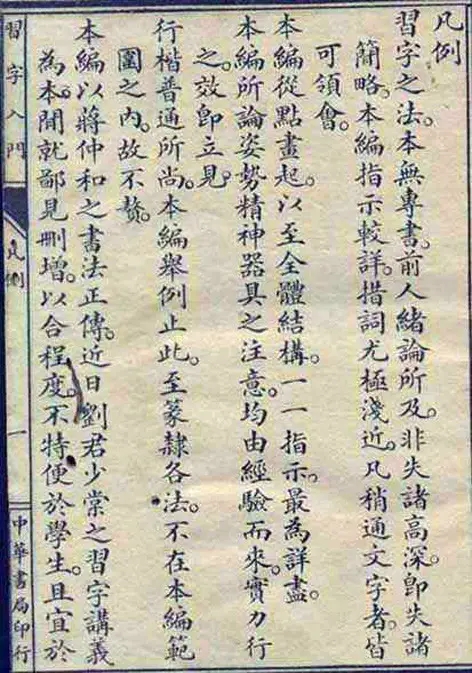 凡例
習字之法。本無專書。前人緒論所及。非失諸高深。卽失諸
簡略。本編指示較詳。措詞尤極淺近。凡稍通文字者。皆
可領會。
本編從點畫起。以至全體結構。一一指示。最為詳盡。
本編所論姿勢精神器具之注意。均由經驗而來。實力行
之。效卽立見。
行楷普通所尚。本編舉例止此。至篆隸各法。不在本編範
圍之內。故不贅。
本編以蔣仲和之書法正傳。近日劉君少棠之習字講義
為本。間就鄙見刪增。以合程度。不特便於學生。且宜於
習字入門
凡例
一
中華書局印行